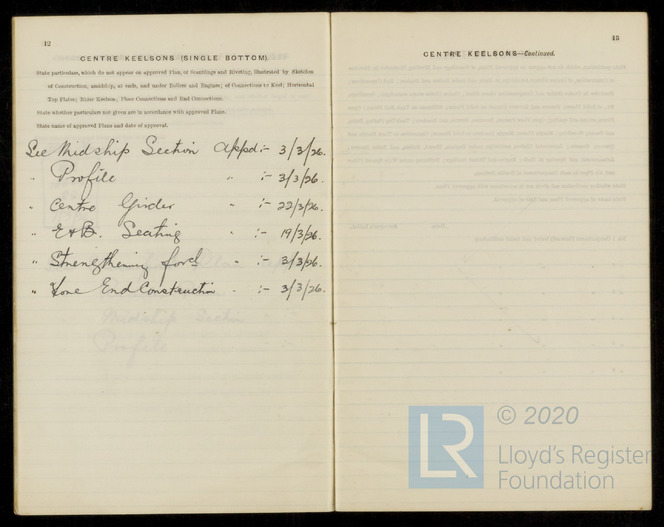 12
CENTRE KEELSONS (SINGLE BOTTOM).
State particulars, which do not appear on approved Plan, of Scantlings and Riveting, illustrated by Sketches
of Construction, amidships, at ends, and under Boilers and Engines; of Connections to Keel; Horizontal
Top Plates; Rider Keelson; Floor Connections and End Connections.
State whether particulars not given are in accordance with approved Plans.
State name of approved Plans and date of approval.
See Midship Section appd :- 3/3/26.
" Profile " :- 3/3/26.
" Centre Girder " :- 22/3/26.
" E & B. Seating " :- 19/3/26.
" Strengthening ford " :- 3/3/26.
" Fore End Construction " :- 3/3/26.
13
CENTRE KEELSONS—Continued.
LR
© 2020
Lloyd's Register
Foundation